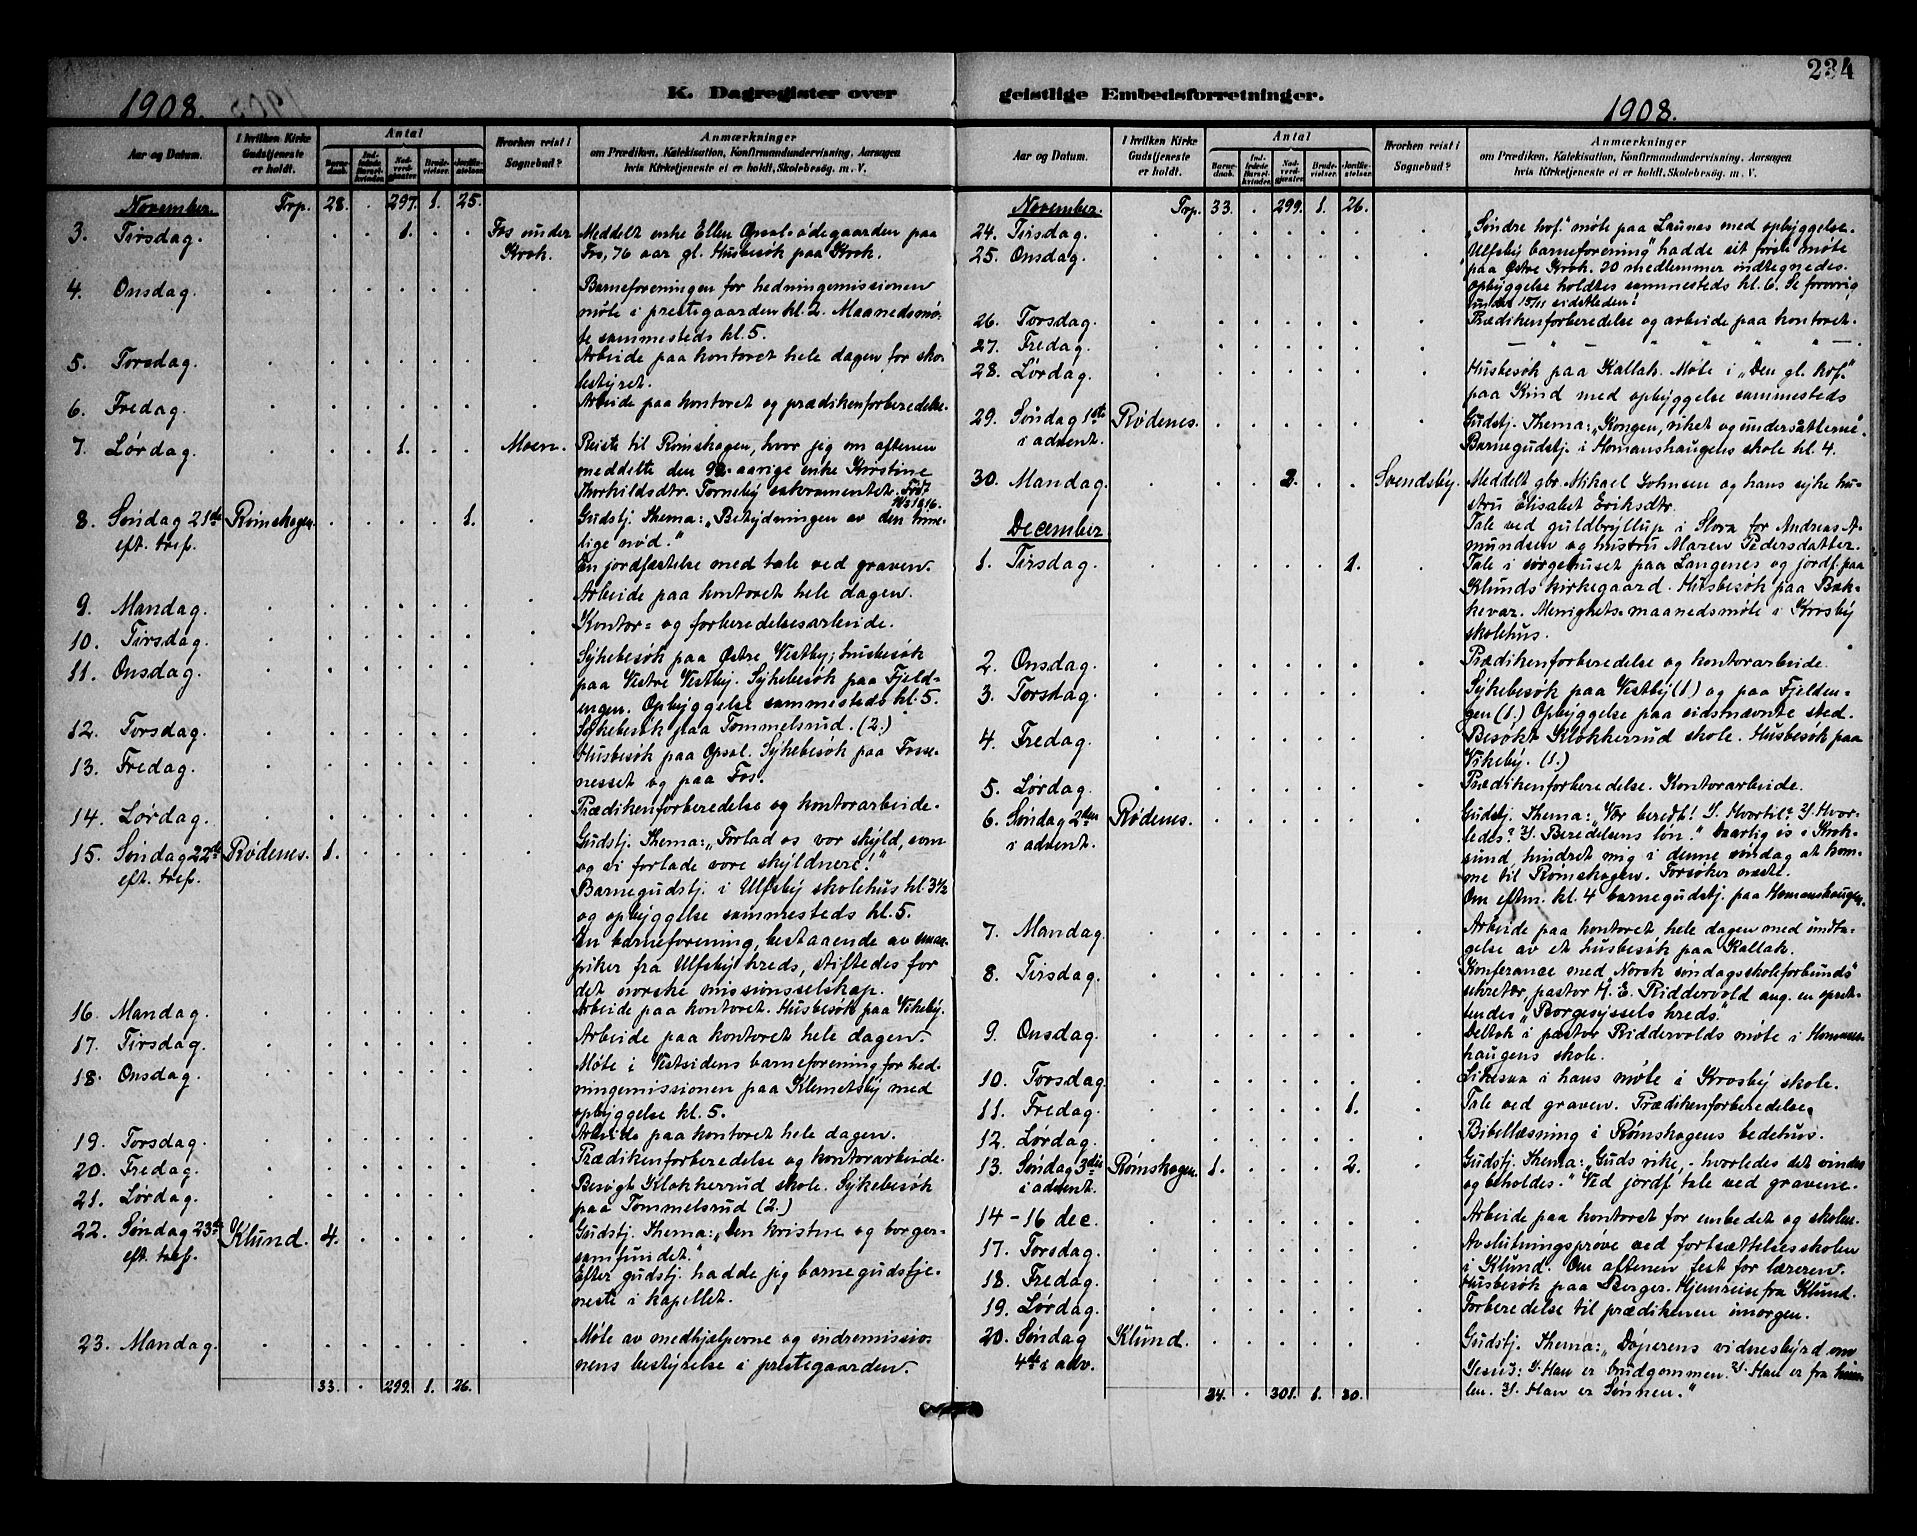 234
K. Dagregister over
1908.
Aar og Datum.
I hvilken Kirke Gudstjeneste er holdt.
Antal
Barnedaab.
Indledede Barselkvinder.
Nadverdgjæster.
Brudevielser.
Jordfæstelser.
Hvorhen reist i Sognebud?
Anmærkninger
om Prædiken, Katekisation, Konfirmandundervisning, Aarsagen
hvis Kirketjeneste ei er holdt, Skolebesøg, m. V.
November. Trp. 28. . 297. 1. 25.
3. Tirsdag. . . . 1. . . Fos under Meddelt enke Ellen Opsal-ødegaarden paa
Krok. Fos, 76 aar gl. Husbesøk paa Krok.
4. Onsdag. Barneforeningen for hedningemissionen
møte i prestegaarden kl. 2. Maanedsmø-
te sammesteds kl. 5.
5. Torsdag. Arbeide paa kontoret hele dagen for sko-
lestyret.
6. Fredag. Arbeide paa kontoret og prædikenforberedelse.
7. Lørdag. . . . 1. . . Moen. Reiste til Rømskogen, hvor jeg om aftenen
meddelte den 92-aarige enke Kirstine
Thorkildsdtr. Torneby sakramentet. Født
1816.
8. Søndag 21de Rømskogen. . . . . 1. . Gudstj. Thema: „Betydningen av den time-
eft. tref. lige nød.”
En jordfæstelse med tale ved graven.
9. Mandag. Arbeide paa kontoret hele dagen.
10. Tirsdag. Kontor= og forberedelsesarbeide.
11. Onsdag. Sykebesøk paa Østre Vestby; husbesøk
paa Vestre Vestby. Sykebesøk paa Fjeld=
engen. Opbyggelse sammesteds kl. 5.
12. Torsdag. Sykebesøk paa Tommelsrud. (2.)
13. Fredag. Husbesøk paa Opsal. Sykebesøk paa Fosse-
nesset og paa Fos.
14. Lørdag. Prædikenforberedelse og kontorarbeide.
15. Søndag 22de Rødenes. 1. Gudstj. Thema: „Forlad os vor skyld, som
eft. tref. og vi forlade vore skyldnere!”
Barnegudstj. i Ulfsby skolehus kl. 3½
og opbyggelse sammesteds kl. 5.
En barneforening, bestaaende av smaa-
piker fra Ulfsby kreds, stiftedes for
det norske missionsselskap.
16. Mandag. Arbeide paa kontoret. Husbesøk paa Vikeby.
17. Tirsdag. Arbeide paa kontoret hele dagen.
18. Onsdag. Møte i Vestsidens barneforening for hed-
ningemissionen paa Klemetsby med
opbyggelse kl. 5.
19. Torsdag. Arbeide paa kontoret hele dagen.
20. Fredag. Prædikenforberedelse og kontorarbeide.
21. Lørdag. Besøgt Klokkerud skole. Sykebesøk
paa Tommelsrud (2.)
22. Søndag 23de Klund. 4. Gudstj. Thema: „Den kristne og borger-
eft. tref. samfundet.”
Efter gudstj. hadde jeg barnegudstje-
neste i kapellet.
23. Mandag. Møte av medhjælperne og indremissio-
nens bestyrelse i prestegaarden.
33. . 299. 1. 26.
geistlige Embedsforretninger.
1908.
Aar og Datum.
I hvilken Kirke Gudstjeneste er holdt.
Antal
Barnedaab.
Indledede Barselkvinder.
Nadverdgjæster.
Brudevielser.
Jordfæstelser.
Hvorhen reist i Sognebud?
Anmærkninger
om Prædiken, Katekisation, Konfirmandundervisning, Aarsagen
hvis Kirketjeneste ei er holdt, Skolebesøg, m. V.
November. Trp. 33. . 299. 1. 26.
24. Tirsdag. „Søndre kof.” møte paa Launes med opbyggelse.
25. Onsdag. „Ulfsby barneforening” hadde sit første møte
paa Østre Krok. 20 medlemmer indtegnedes.
Opbyggelse holdtes sammesteds kl. 6. Se forøvrig
under 15/11 sidstleden!
26. Torsdag. Prædikenforberedelse og arbeide paa kontoret.
27. Fredag. — „ — „ „ „ „ —.
28. Lørdag. Husbesøk paa Kallak. Møte i „Den gl. kof.”
paa Kind med opbyggelse sammesteds
29. Søndag 1ste Rødenes. Gudstj. Thema: „Kongen, riket og undersatterne.”
i advent. Barnegudstj. i Homanshaugens skole kl. 4.
30. Mandag. . . . 2. . . Svendsby. Meddelt gbr. Mikael Johnsen og hans syke hu-
stru Elisabet Eriksdtr.
Tale ved guldbryllup i Slora for Andreas A-
mundsen og hustru Maren Pedersdatter.
December
1. Tirsdag. . . . . . 1. . Tale i sørgehuset paa Langenes og jordf. paa
Klunds kirkegaard. Husbesøk paa Bak-
kevar. Menighets=maanedsmøte i Krosby
skolehus.
2. Onsdag. Prædikenforberedelse og kontorarbeide.
3. Torsdag. Sykebesøk paa Vestby (1.) og paa Fjelden-
gen (1.) Opbyggelse paa sidstnævnte sted.
4. Fredag. Besøkt Klokkerrud skole. Husbesøk paa
Vikeby. (1.)
5. Lørdag. Prædikenforberedelse. Kontorarbeide.
6. Søndag 2den Rødenes. Gudstj. Thema: „Vær beredt! 1. Hvortil? 2. Hvor-
i advent. ledes? 3. Beredelsens løn.” Daarlig is i Krok-
sund, hindret mig i denne søndag at kom-
me til Rømskogen. Forsøker næste.
Om eftm. kl. 4 barnegudstj. paa Homanshaugen.
7. Mandag. Arbeide paa kontoret hele dagen med undta-
gelse av et husbesøk paa Kallak.
8. Tirsdag. Konferanse med Norsk søndagsskoleforbunds
sekretær, pastor H. E. Riddervold ang. en opret-
tendes „Borgesyssels kreds”.
9. Onsdag. Deltok i pastor Riddervolds møte i Homans-
haugens skole.
10. Torsdag. Likesaa i hans møte i Krosby skole.
11. Fredag. . . . . . 1. . Tale ved graven. Prædikenforberedelse.
12. Lørdag. Bibellæsning i Rømskogens bedehus.
13. Søndag 3die Rømskogen. 1. . . . 2. . Gudstj. Thema: „Guds rike, - hvorledes det vindes
i advent. og beholdes.” Ved jordf. tale ved gravene.
14-16 dec. Arbeide paa kontoret for embedet og skolen.
17. Torsdag. Avslutningsprøve ved fortsættelsesskolen
i Klund. Om aftenen fest for læreren.
18. Fredag. Husbesøk paa Berger. Hjemreise fra Klund.
19. Lørdag. Forberedelse til prædikenen imorgen.
20. Søndag Klund. Gudstj. Thema: „Døperens vidnesbyrd om
4de i adv. Jesus: 1. Han er brudgommen. 2. Han er fra him-
len. 3. Han er Sønnen.”
34. . 301. 1. 30.